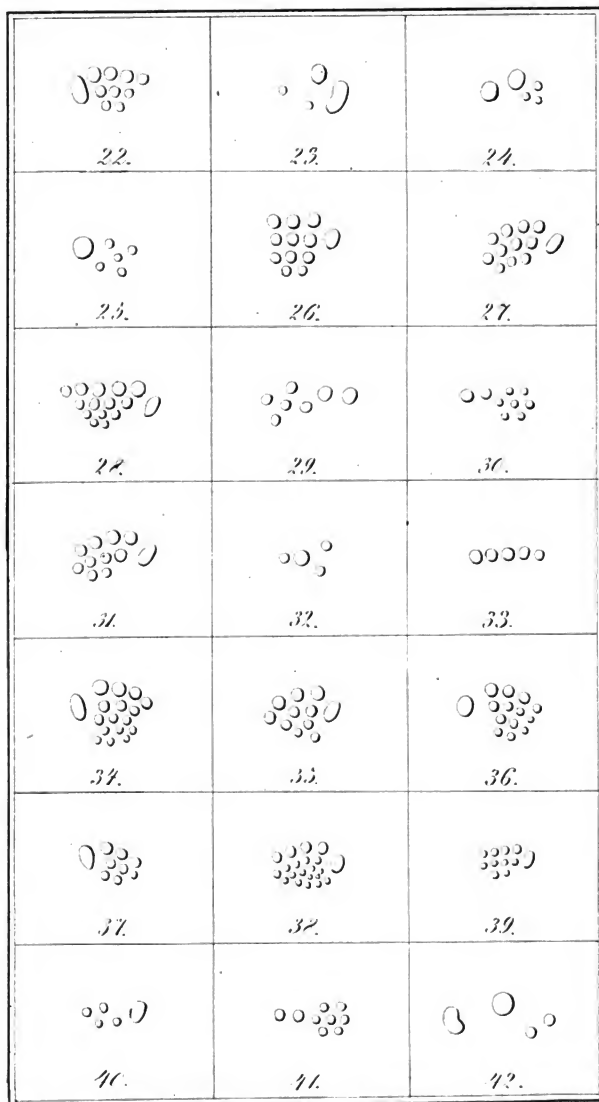 22. 23. 24.
25. 26. 27.
28. 29. 30.
31. 32. 33.
34. 35. 36.
37. 38. 39.
40. 41. 42.